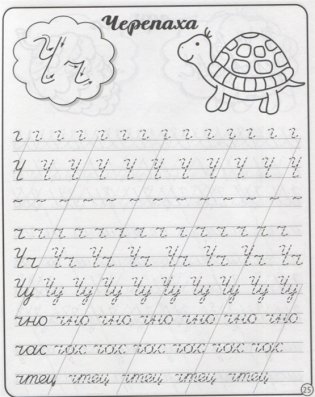 Черепаха
Ч ч
Ч Ч Ч Ч Ч Ч Ч Ч Ч Ч Ч
ч ч ч ч ч ч ч ч ч ч ч ч ч ч ч
Чч Чч Чч Чч Чч Чч Чч Чч
Чу Чу Чу Чу Чу Чу Чу Чу Чу Чу
чно чно чно чно чно чно
час час час час час час час
чтец чтец чтец чтец чтец
25